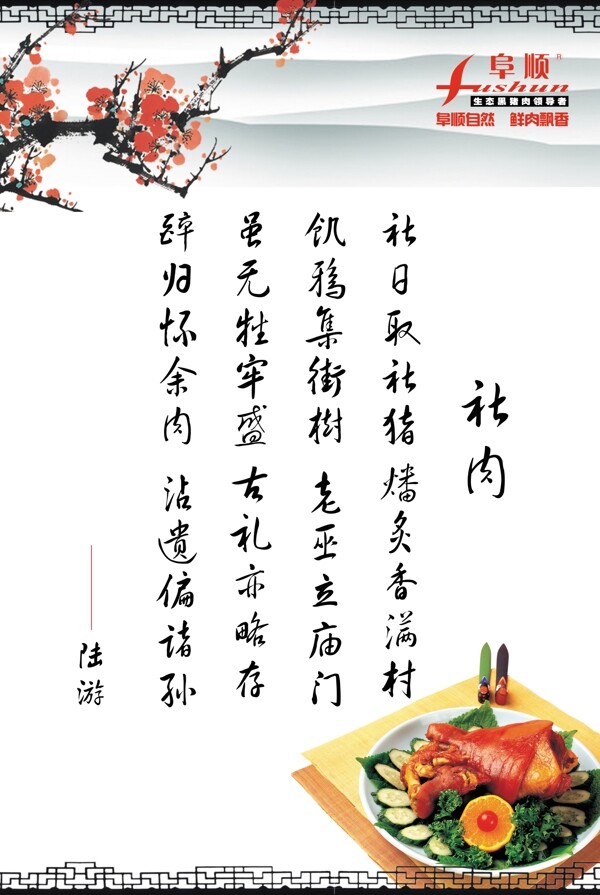 阜顺®
fushun
生态黑猪肉领导者
阜顺自然 鲜肉飘香
社肉
社日取社猪 燔炙香满村
饥鸦集街樹 老巫立庙门
虽无牲牢盛 古礼亦略存
醉归怀余肉 沾遗偏诸孙
陆游